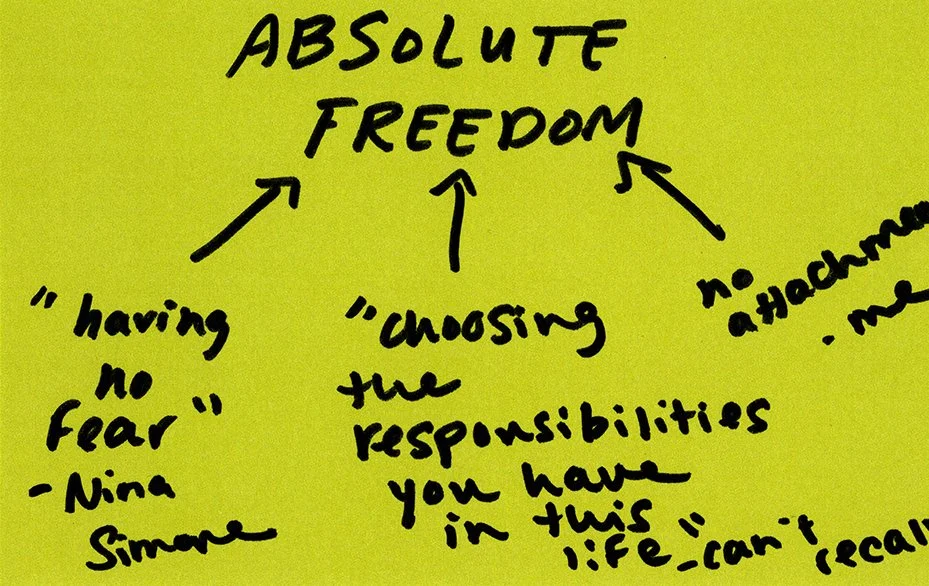 ABSOLUTE
FREEDOM
"having
no
fear"
- Nina
Simone
"choosing
the
responsibilities
you have
in this
life" - can't recall
no
attachmen
- me